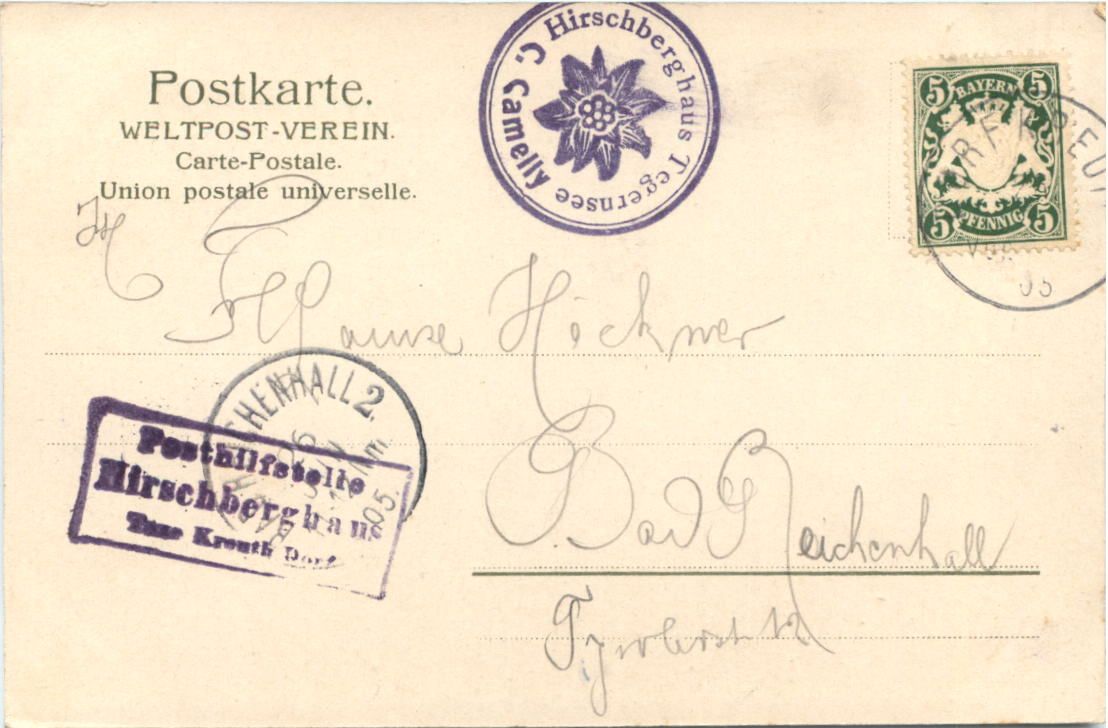 Postkarte.
WELTPOST-VEREIN.
Carte-Postale.
Union postale universelle.
Hirschberghaus Tegernsee
C. Camelly
5 5
BAYERN
PFENNIG
5 5
05
Höckner
REICHENHALL 2.
26
05
Posthilfstelle
Hirschberghaus
Taxe Kreuth Dorf
Bad Reichenhall
Tyrolerstr. 12